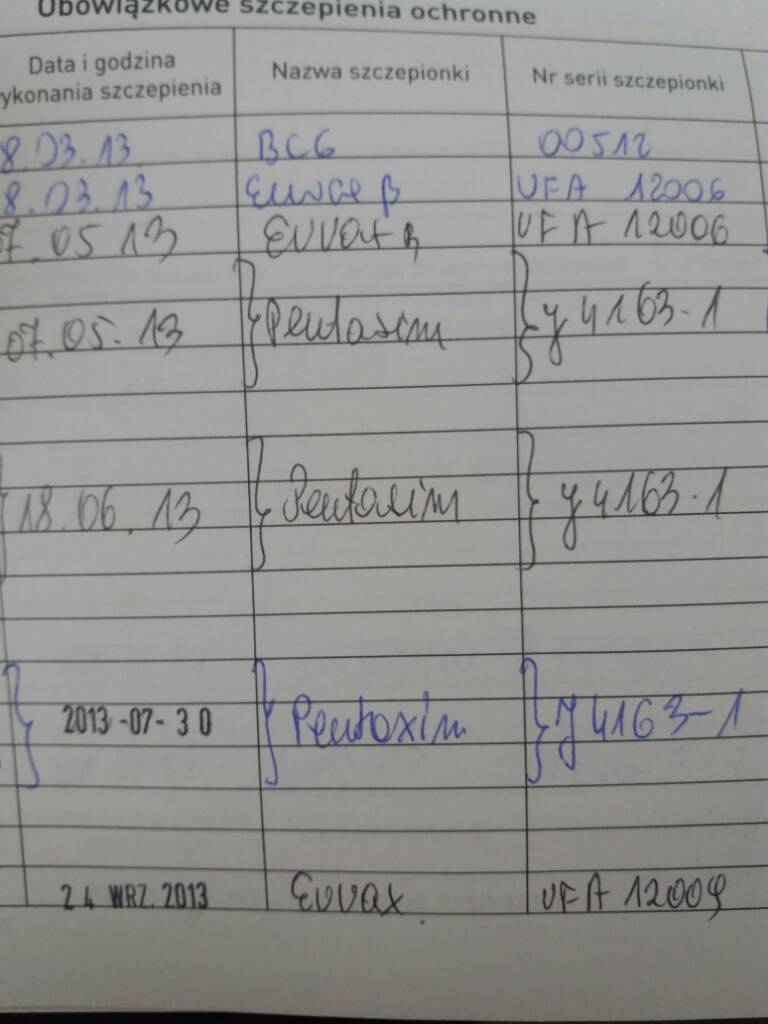 Obowiązkowe szczepienia ochronne
Data i godzina Nazwa szczepionki Nr serii szczepionki
ykonania szczepienia
8.03.13 BCG 00512
8.03.13 Euvax B UFA 12006
7.05 13 Euvax B UFA 12006
07.05.13 Pentaxim y4163-1
18.06.13 Pentaxim y4163-1
2013-07-30 Pentaxim y4163-1
24 WRZ. 2013 Euvax UFA 12009